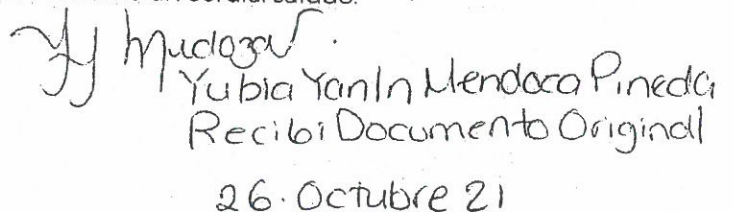 Yubia YanIn Mendoza Pineda
Recibi Documento Original
26. Octubre 21